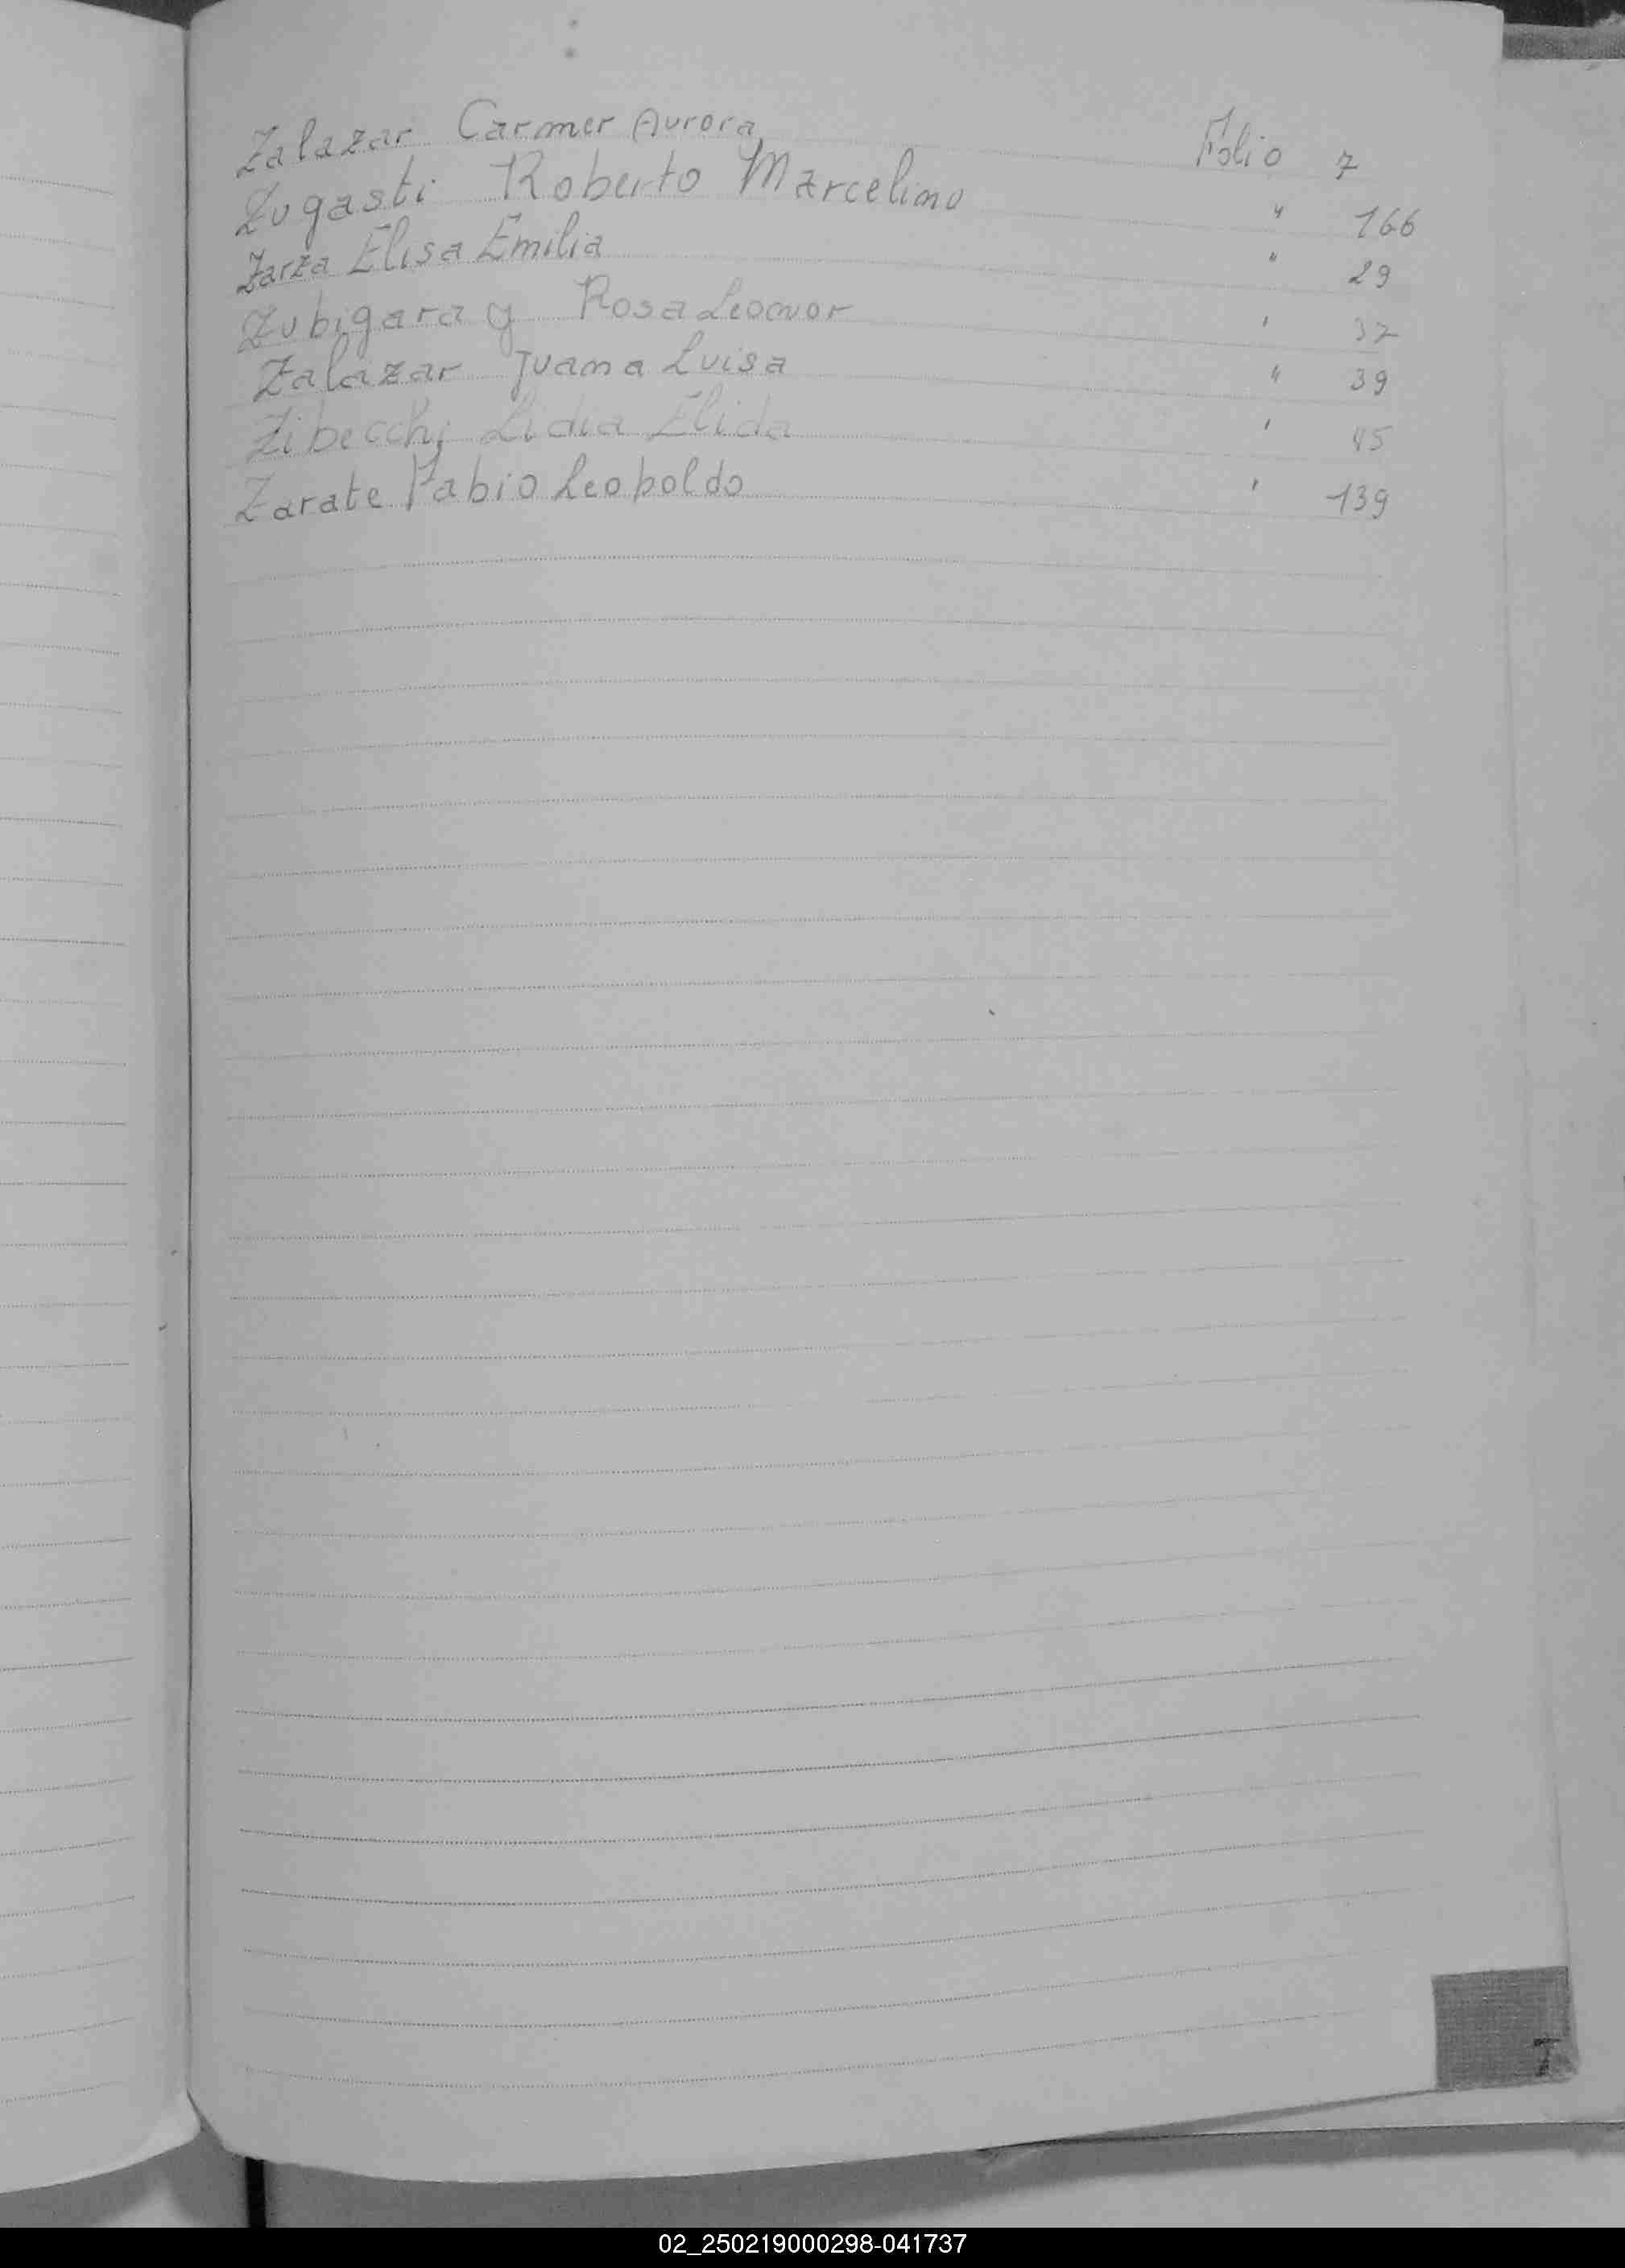 Zalazar Carmer Aurora Folio 7
Zugasti Roberto Marcelino " 166
Zarza Elisa Emilia " 29
Zubigaray Rosa Leonor ' 32
Zalazar Juana Luisa " 39
Zibecchi Lidia Elida ' 45
Zarate Fabio Leopoldo ' 139
02_250219000298-041737